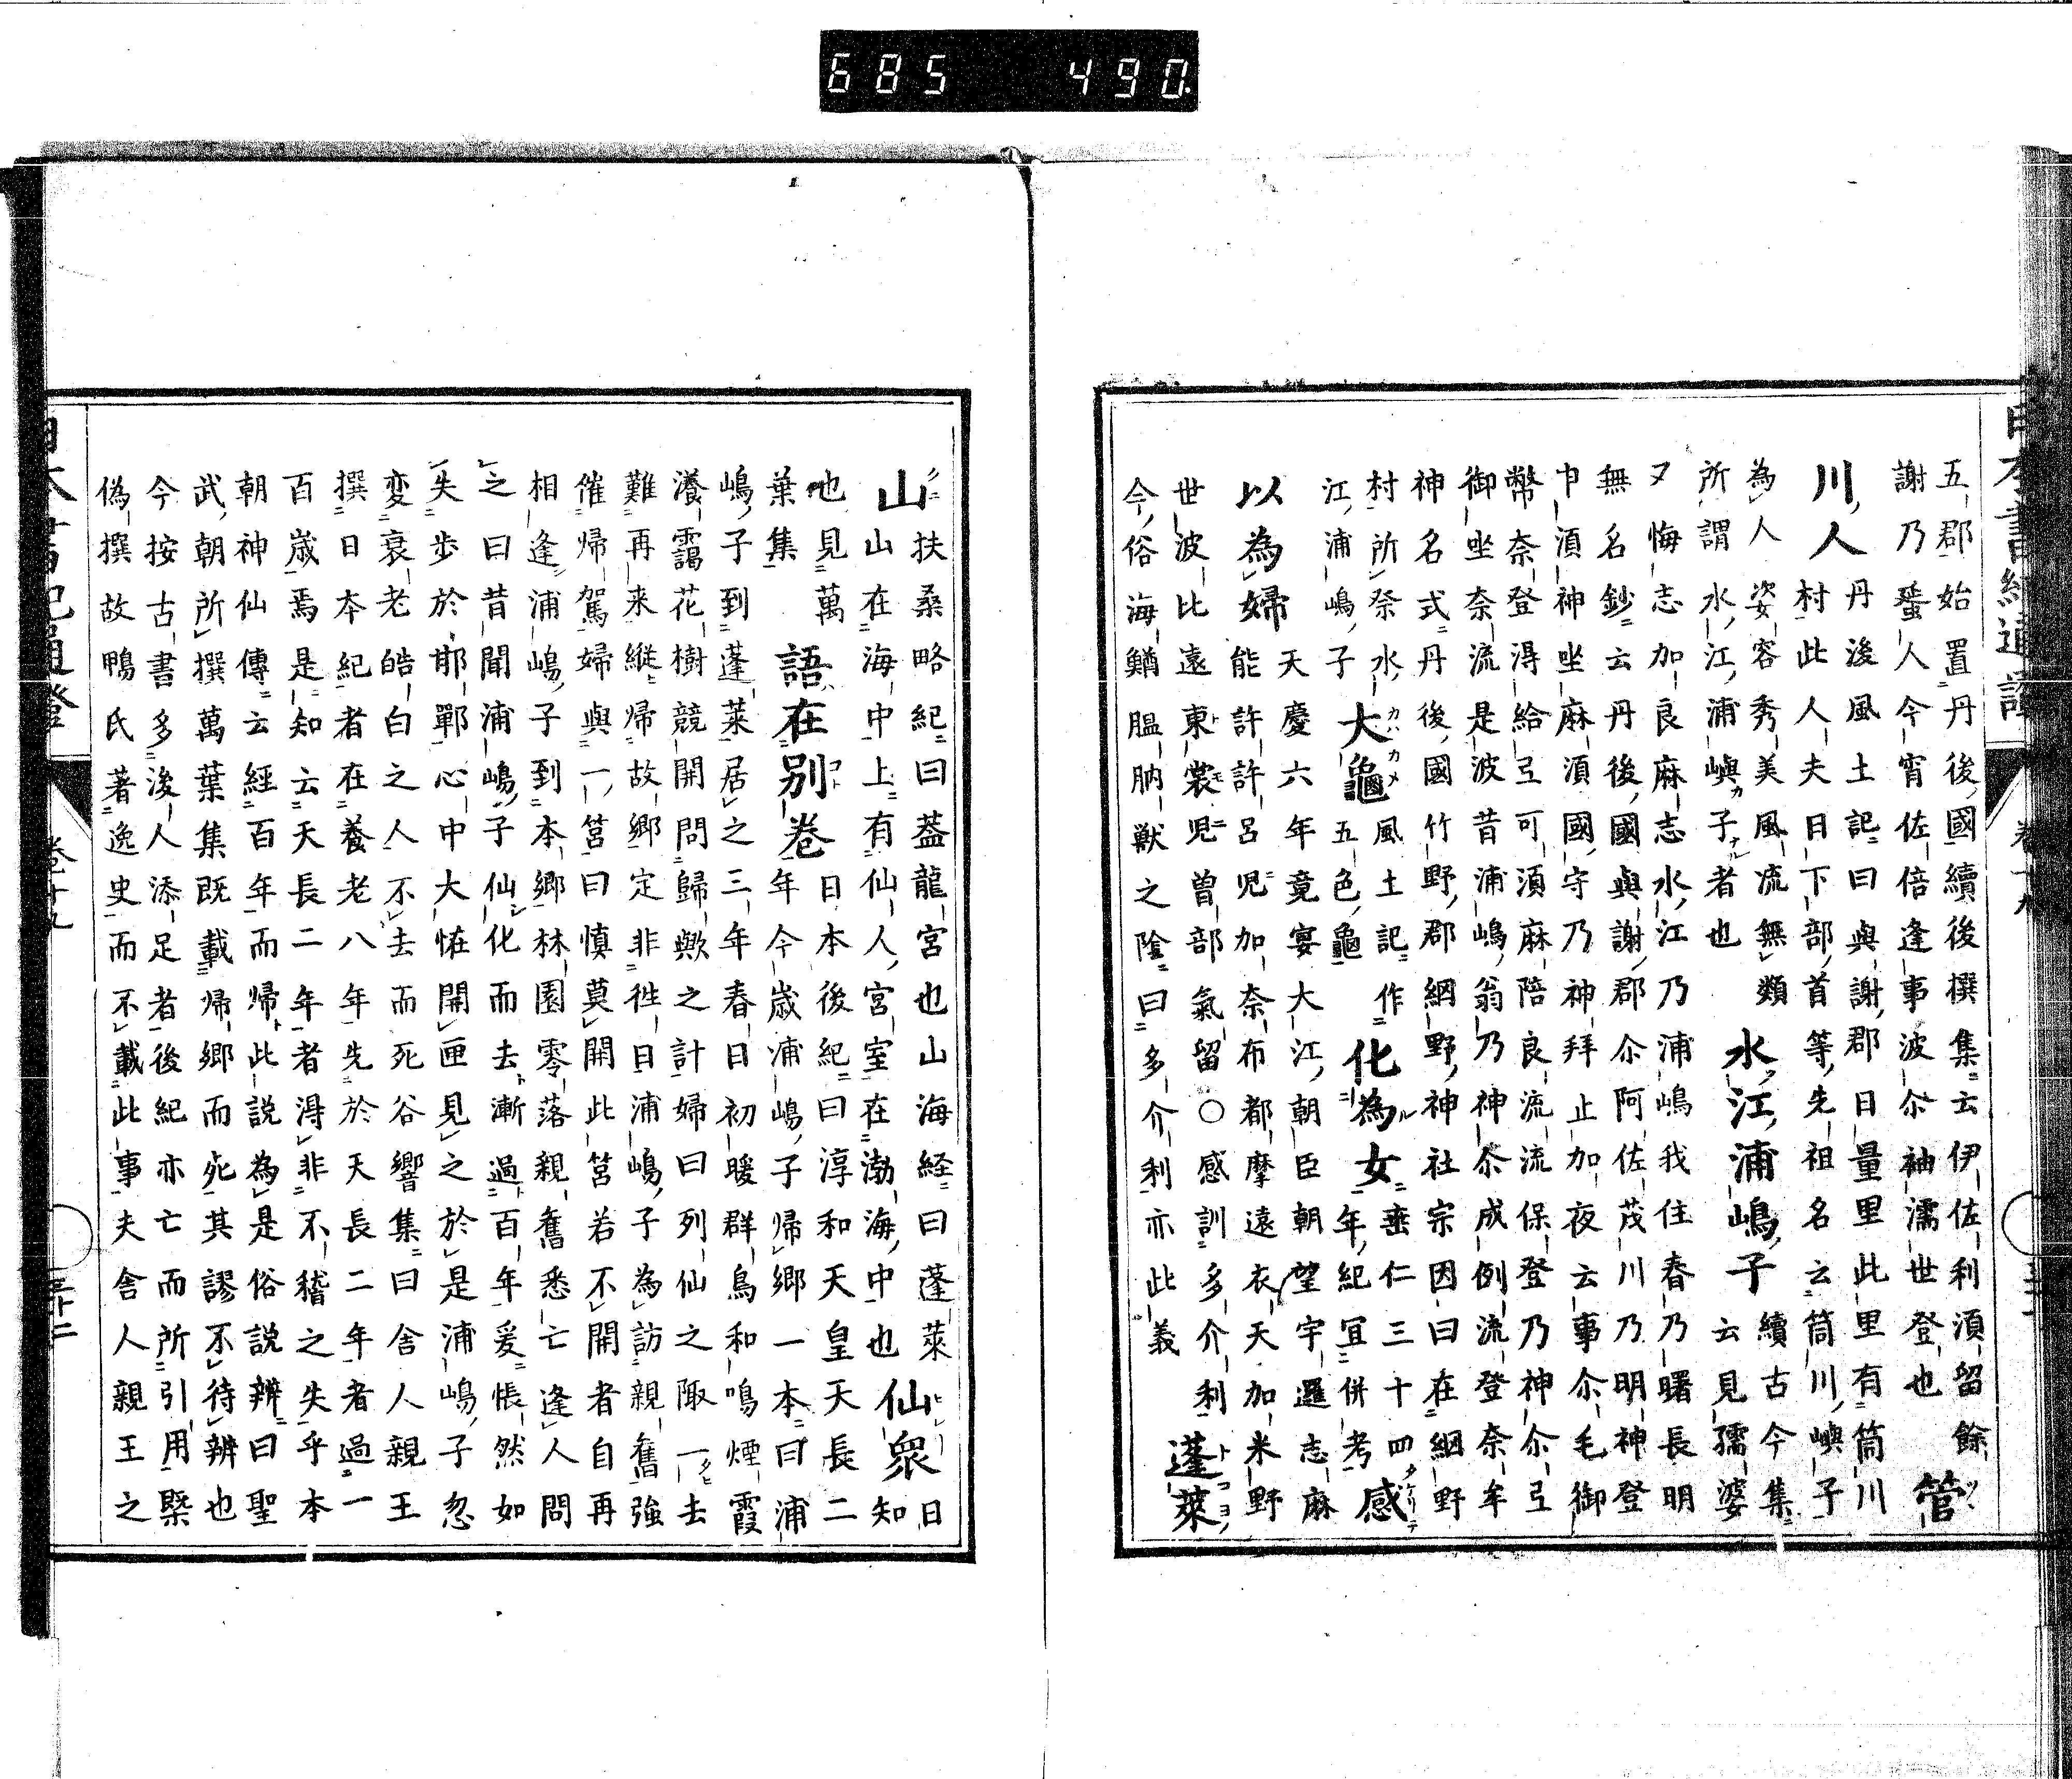 日本書紀通證
五郡始置丹後國續後撰集云伊佐利湏留餘
謝乃蜑人今宵佐倍逢事波尒袖濡世登也
管
川人
丹後風土記曰與謝郡日量里此里有筒川
村此人夫日下部首等先祖名云筒川嶼子
為人姿容秀美風流無類
所謂水江浦嶼子者也
水江浦嶋子
續古今集
云見孺婆
ヌ悔志加良麻志水江乃浦嶋我住春乃曙長明
無名鈔云丹後國與謝郡尒阿佐茂川乃明神登
申湏神坐麻湏國守乃神拜止加夜云事尒毛御
幣奈登淂給弖可湏麻陪良流流保登乃神尒弖
御坐奈流是波昔浦嶋翁乃神尒成例流登奈牟
神名式丹後國竹野郡網野神社宗因曰在網野
村所祭水
江浦嶋子
大龜
風土記作
五色龜
化為女
垂仁三十四
年紀冝併考
感
以為婦
天慶六年竟宴大江朝臣朝望宇邏志麻
能許許呂児加奈布都摩遠衣天加米野
世波比遠東裳児曽部氣留○感訓多介利
今俗海鰌膃肭獣之陰曰多介利亦此義
蓬萊
山
扶桑略紀曰葢龍宮也山海経曰蓬萊
山在海中上有仙人宮室在渤海中也
仙衆
日
知
也見萬
葉集
語在别卷
日本後紀曰淳和天皇天長二
年今歳浦嶋子帰郷一本曰浦
嶋子到蓬萊居之三年春日初暖群鳥和鳴煙霞
瀁靄花樹競開問歸歟之計婦曰列仙之陬一去
難再来縱帰故郷定非徃日浦嶋子為訪親舊強
催帰駕婦與一筥曰慎莫開此筥若不開者自再
相逢浦嶋子到本郷林園零落親舊悉亡逢人問
之曰昔聞浦嶋子仙化而去漸過百年爰悵然如
失歩於邯鄲心中大恠開匣見之於是浦嶋子忽
変衰老皓白之人不去而死谷響集曰舎人親王
撰日本紀者在養老八年先於天長二年者過一
百歳焉是知云天長二年者淂非不稽之失乎本
朝神仙傳云經百年而帰此説為是俗説辨曰聖
武朝所撰萬葉集既載帰郷而死其謬不待辨也
今按古書多後人添足者後紀亦亡而所引用槩
偽撰故鴨氏著逸史而不載此事夫舎人親王之
日本書紀通證
卷十九
三十二
685 490